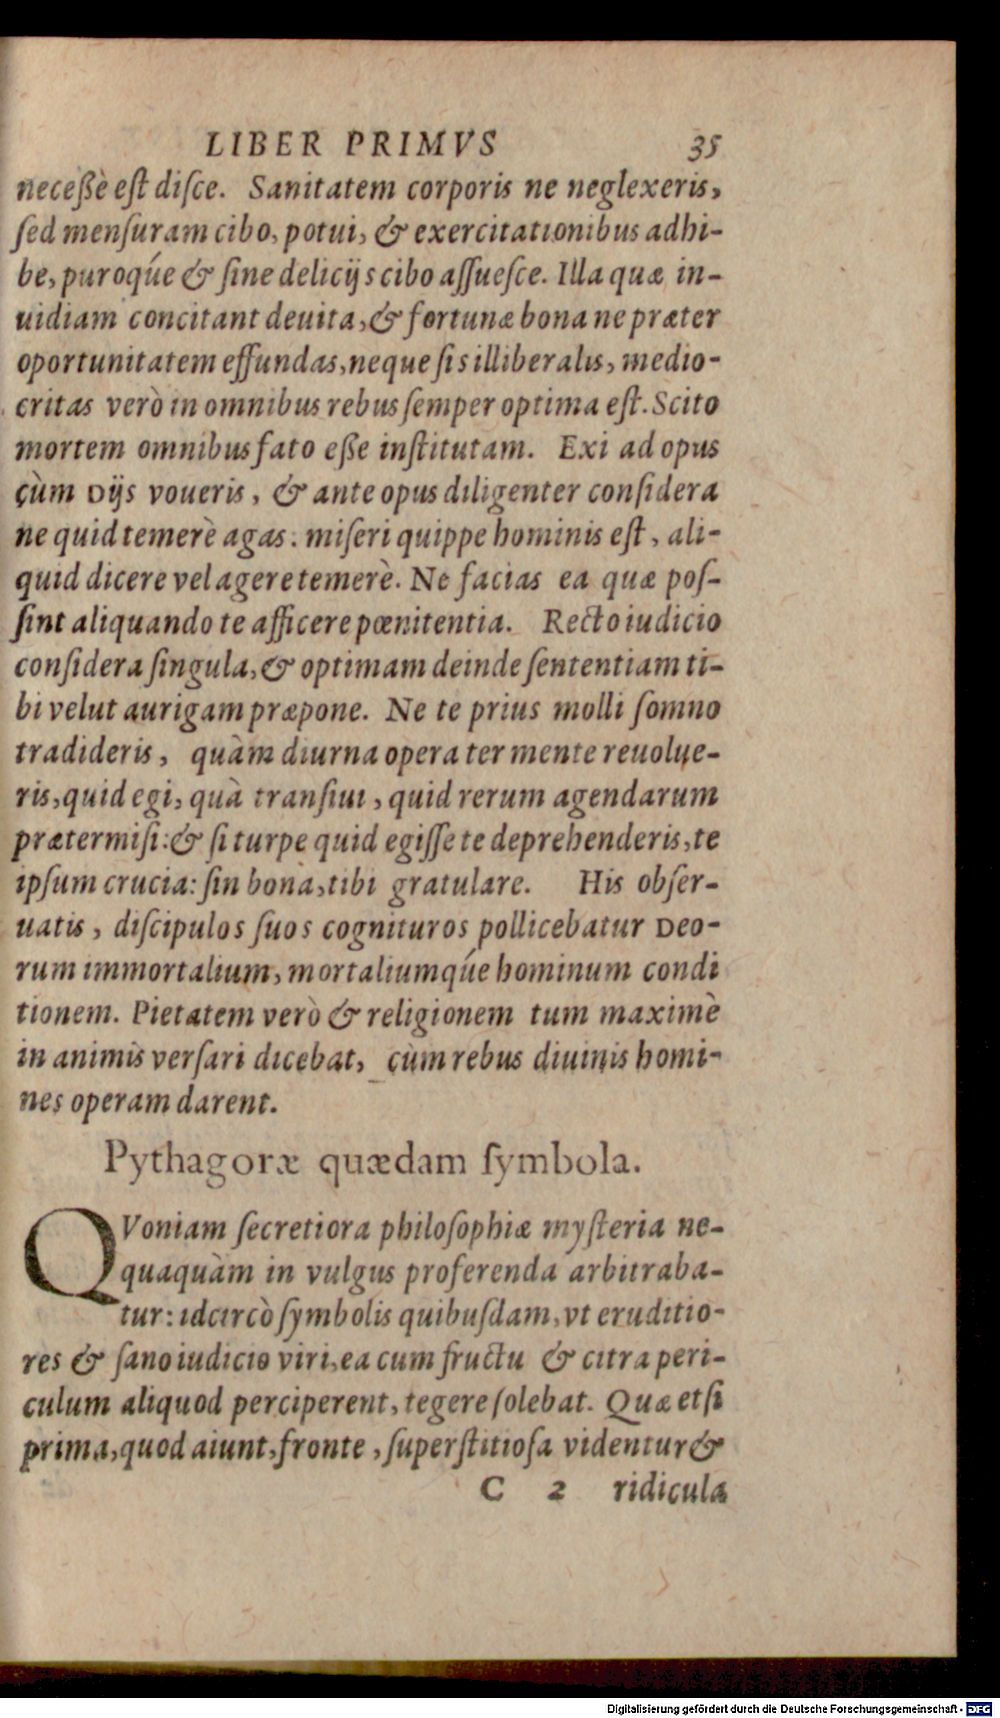 LIBER PRIMVS 35
neceßè eſt diſce. Sanitatem corporis ne neglexeris,
ſed menſuram cibo, potui, & exercitationibus adhi-
be, puroq́ue & ſine delicijs cibo aſſueſce. Illa quæ in-
uidiam concitant deuita, & fortunæ bona ne præter
oportunitatem effundas, neque ſis illiberalis, medio-
critas verò in omnibus rebus ſemper optima eſt. Scito
mortem omnibus fato eße inſtitutam. Exi ad opus
cùm Dijs voueris, & ante opus diligenter conſidera
ne quid temerè agas: miſeri quippe hominis eſt, ali-
quid dicere vel agere temerè. Ne facias ea quæ poſ-
ſint aliquando te afficere pœnitentia. Recto iudicio
conſidera ſingula, & optimam deinde ſententiam ti-
bi velut aurigam præpone. Ne te prius molli ſomno
tradideris, quàm diurna opera ter mente reuolue-
ris, quid egi, quà tranſiui, quid rerum agendarum
prætermiſi: & ſi turpe quid egiſſe te deprehenderis, te
ipſum crucia: ſin bona, tibi gratulare. His obſer-
uatis, diſcipulos ſuos cognituros pollicebatur Deo-
rum immortalium, mortaliumq́ue hominum condi
tionem. Pietatem verò & religionem tum maximè
in animis verſari dicebat, cùm rebus diuinis homi-
nes operam darent.
Pythagoræ quædam ſymbola.
QVoniam ſecretiora philoſophiæ myſteria ne-
quaquàm in vulgus proferenda arbitraba-
tur: idcircò ſymbolis quibuſdam, vt eruditio-
res & ſano iudicio viri, ea cum fructu & citra peri-
culum aliquod perciperent, tegere ſolebat. Quæ etſi
prima, quod aiunt, fronte, ſuperſtitioſa videntur &
C 2 ridicula
Digitalisierung gefördert durch die Deutsche Forschungsgemeinschaft - DFG